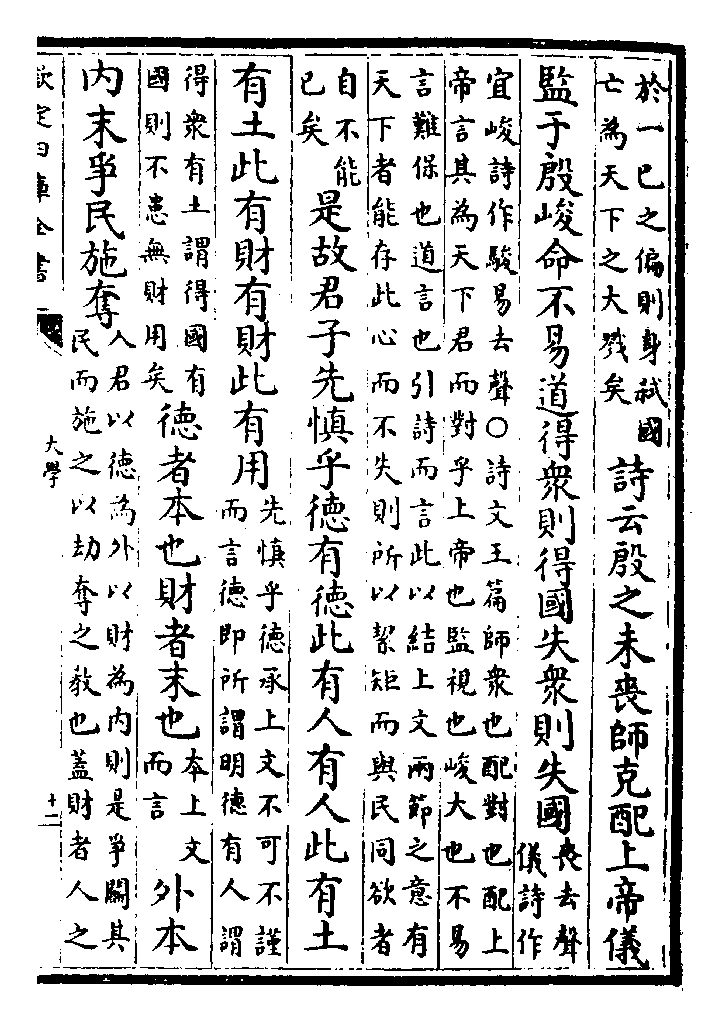 於一己之偏則身弑國
亡為天下之大戮矣
詩云殷之未喪師克配上帝儀
監于殷峻命不易道得衆則得國失衆則失國
喪去聲
儀詩作
宜峻詩作駿易去聲○詩文王篇師衆也配對也配上
帝言其為天下君而對乎上帝也監視也峻大也不易
言難保也道言也引詩而言此以結上文兩節之意有
天下者能存此心而不失則所以絜矩而與民同欲者
自不能
已矣
是故君子先慎乎德有德此有人有人此有土
有土此有財有財此有用
先慎乎德承上文不可不謹
而言德即所謂明德有人謂
得衆有土謂得國有
國則不患無財用矣
德者本也財者末也
本上文
而言
外本
内末爭民施奪
人君以德為外以財為内則是爭鬭其
民而施之以劫奪之教也蓋財者人之
欽定四庫全書
大學
十二